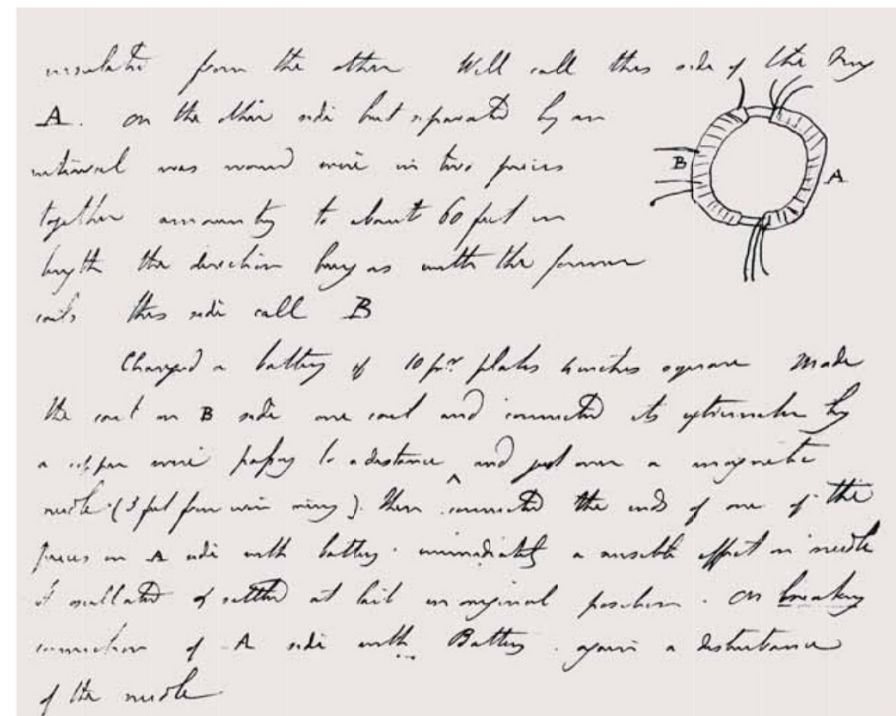 insulated from the other Will call this side of the ring
A. on the other side but separated by an
interval was wound wire in two pieces
together amounting to about 60 feet in
length the direction being as with the former
coils this side call B
B
A
Charged a battery of 10 pr. plates 4 inches square Made
the coil on B side one coil and connected its extremities by
a copper wire passing to a distance ^ and just over a magnetic
needle (3 feet from wire ring). then connected the ends of one of the
pieces on A side with battery. immediately a sensible effect on needle
It oscillated & settled at last in original position. On breaking
connection of A side with Battery again a disturbance
of the needle.